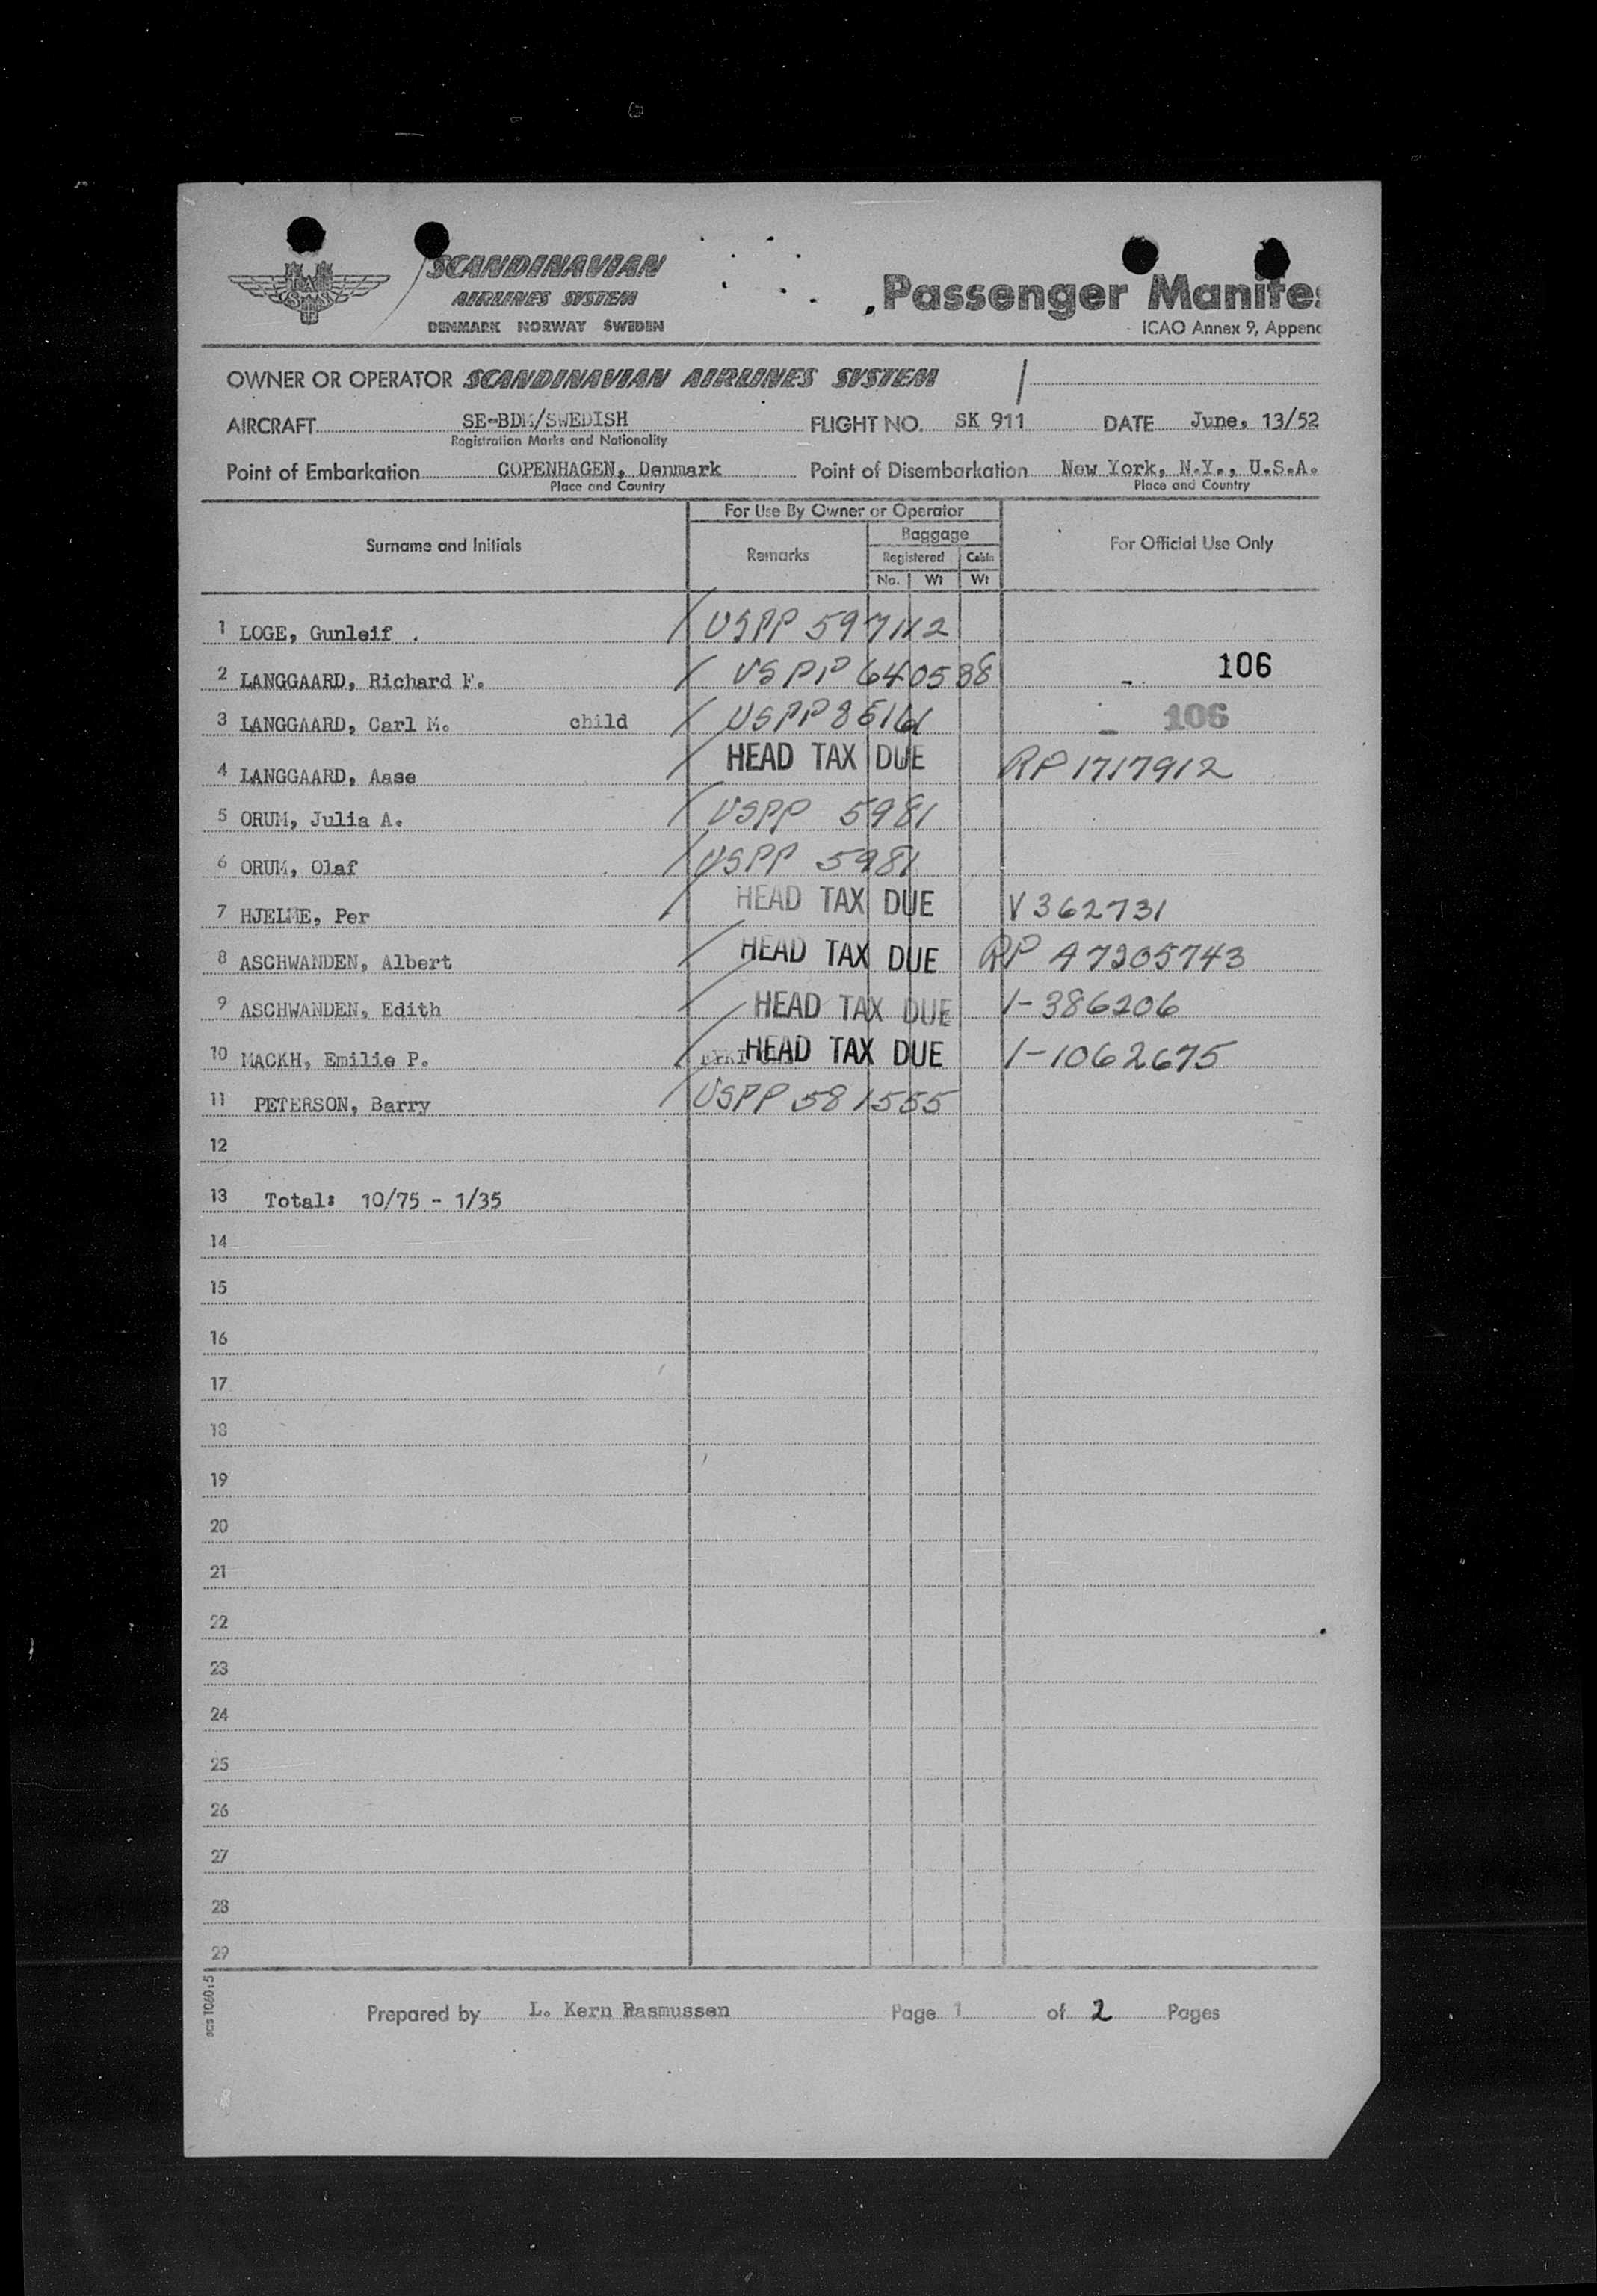 SCANDINAVIAN
AIRLINES SYSTEM
DENMARK NORWAY SWEDEN
Passenger Manifes
ICAO Annex 9, Append
OWNER OR OPERATOR SCANDINAVIAN AIRLINES SYSTEM
AIRCRAFT SE-BDM/SWEDISH FLIGHT NO. SK 911 DATE June, 13/52
Registration Marks and Nationality
Point of Embarkation COPENHAGEN, Denmark Point of Disembarkation New York, N.Y., U.S.A.
Place and Country Place and Country
For Use By Owner or Operator
Surname and Initials Remarks Baggage For Official Use Only
Registered Cabin
No. Wt Wt
1 LOGE, Gunleif . USPP 597112
2 LANGGAARD, Richard F. USPP 640588 106
3 LANGGAARD, Carl M. child USPP 106
4 LANGGAARD, Aase HEAD TAX DUE RP 1717912
5 ORUM, Julia A. USPP 5981
6 ORUM, Olaf USPP 5981
7 HJELME, Per HEAD TAX DUE V 362731
8 ASCHWANDEN, Albert HEAD TAX DUE RP A7205743
9 ASCHWANDEN, Edith HEAD TAX DUE 1-386206
10 MACKH, Emilie P. HEAD TAX DUE 1-1062675
11 PETERSON, Barry USPP 581555
12
13 Total: 10/75 - 1/35
14
15
16
17
18
19
20
21
22
23
24
25
26
27
28
29
Prepared by L. Kern Rasmussen Page 1 of 2 Pages